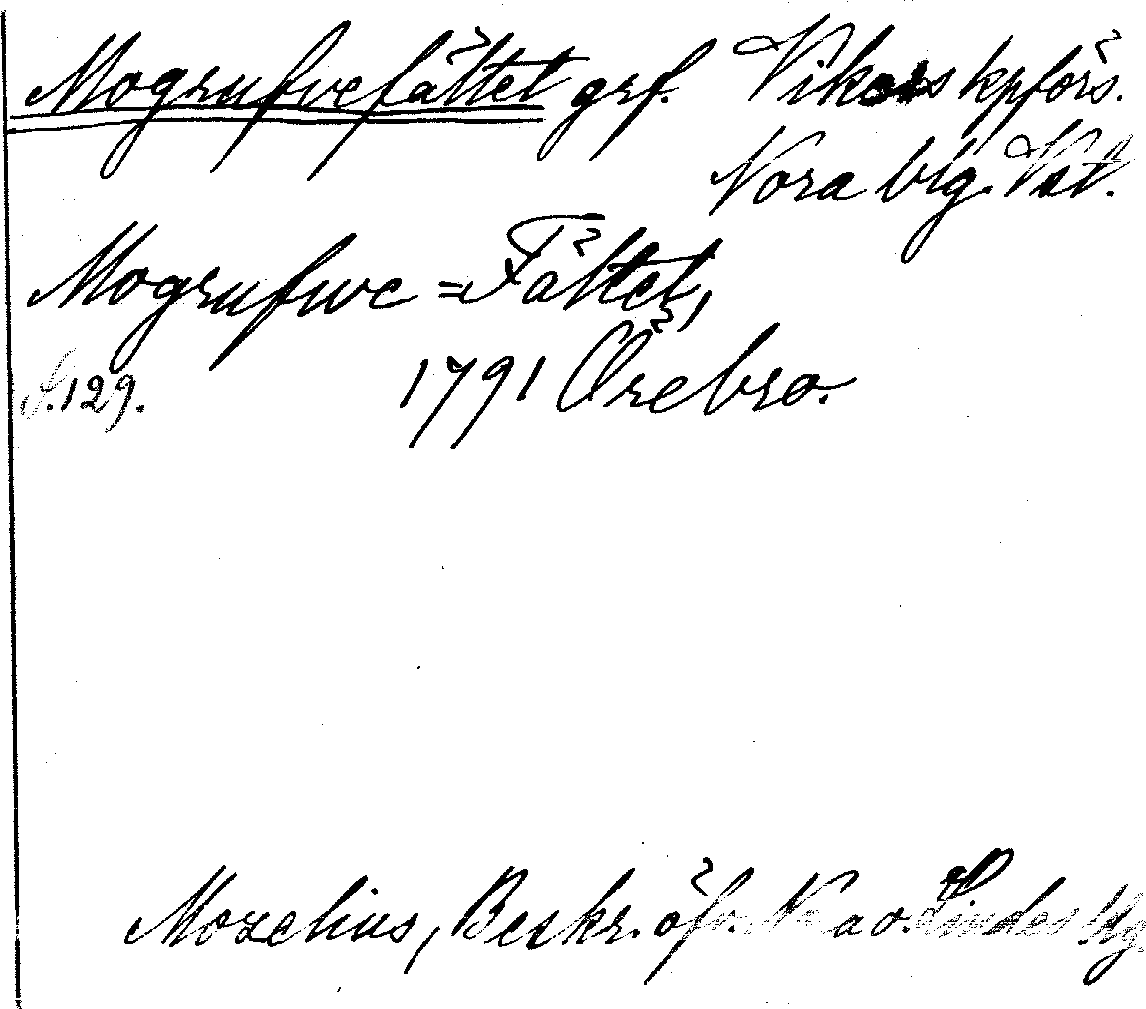 Mogrufvefältet grf. Vikers kpförs.
Nora blg. Vstl.
Mogrufwe=Fältet,
S. 129. 1791 Örebro.
Mozelius, Beskr. öfv. Nora o. Lindes blg.